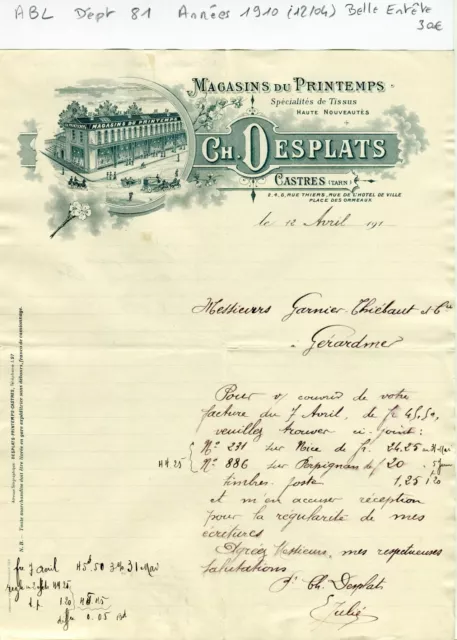 ABL Dépt 81 Années 1910 (12/04) Belle Entête
30€
MAGASINS DU PRINTEMPS
Spécialités de Tissus
HAUTE NOUVEAUTÉS
MAGASINS DU PRINTEMPS
CH. DESPLATS
CASTRES (TARN)
2, 4, 6, RUE THIERS, RUE DE L'HÔTEL DE VILLE
PLACE DES ORMEAUX
le 12 Avril 191
Messieurs Garnier-Thiébaut et Cie
à Gérardmer
Pour v/ couvrir de votre
facture du 7 Avril, de fr 45,50,
veuillez trouver ci-joint:
No. 231 sur Nice de fr. 24.25 31 Mai
44.25
No. 886 sur Perpignan de f 20 . 5
timbres poste 1,25 1.20
et m'en accuser réception
pour la régularité de mes
écritures
Agréez Messieurs, mes respectueuses
salutations
Pr Ch. Desplats
Julié
fre 7 avril 45.50 31 Mai
44.25
1.20
0.05
Adresse télégraphique: DESPLATS-PRINTEMPS-CASTRES, Téléphone
N. B. - Toute marchandise doit être livrée en gare expéditrice sans débours, franco de camionnage.